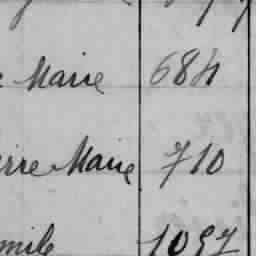 Marie 684
erre Marie 710
mile 1097